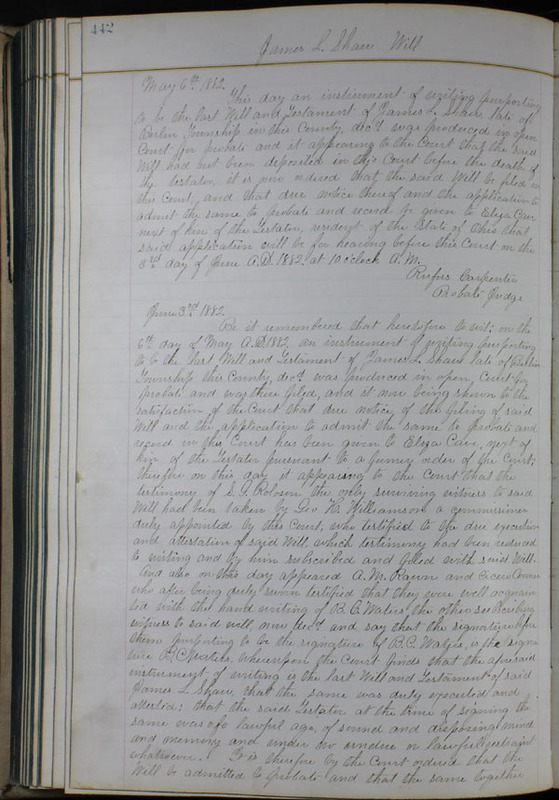 442
James L. Shaw Will
May 6th 1882.
This day an instrument of writing purporting
to be the last Will and Testament of James L. Shaw late of
Berlin Township in this County, decd was produced in open
Court for probate and it appearing to the Court that the said
Will had not been deposited in this Court before the death of
the testator it is now ordered that the said Will be filed in
this Court, and that due notice thereof and the application to
admit the same to probate and record be given to Eliza
next of kin of the Testator, resident of the State of Ohio that
said application will be for hearing before this Court on the
3rd day of June A.D. 1882 at 10 o'clock A.M.
Rufus Carpenter
Probate Judge
June 3rd 1882
Be it remembered that heretofore to wit: on the
6th day of May A.D. 1882 an instrument of writing purporting
to be the last Will and Testament of James L. Shaw late of Berlin
Township this County, decd was produced in open Court for
probate and was there filed, and it now being shown to the
satisfaction of the Court that due notice of the filing of said
Will and the application to admit the same to probate and
record in this Court has been given to Eliza next of
kin of the Testator pursuant to a former order of the Court;
therefore on this day it appearing to the Court that the
testimony of S. the only surviving witness to said
Will had been taken by Geo H. Williamson a commissioner
duly appointed by this Court, who testified to the due execution
and attestation of said Will, which testimony had been reduced
to writing and by him subscribed and filed with said Will.
And also on this day appeared A. M. and
who after being duly sworn testified that they were well acquain
ted with the hand writing of B. C. Waters the other subscribing
witness to said will now decd and say that the signature before
them purporting to be the signature of B. C. Waters, is the signa
ture B. C. Waters, whereupon the Court finds that the aforesaid
instrument of writing is the last Will and Testament of said
James L. Shaw, that the same was duly executed and
attested; that the said Testator at the time of signing the
same was of lawful age, of sound and disposing mind
and memory and under no undue or lawful restraint
whatsoever. It is therefore by the Court ordered that the
Will be admitted to probate and that the same together